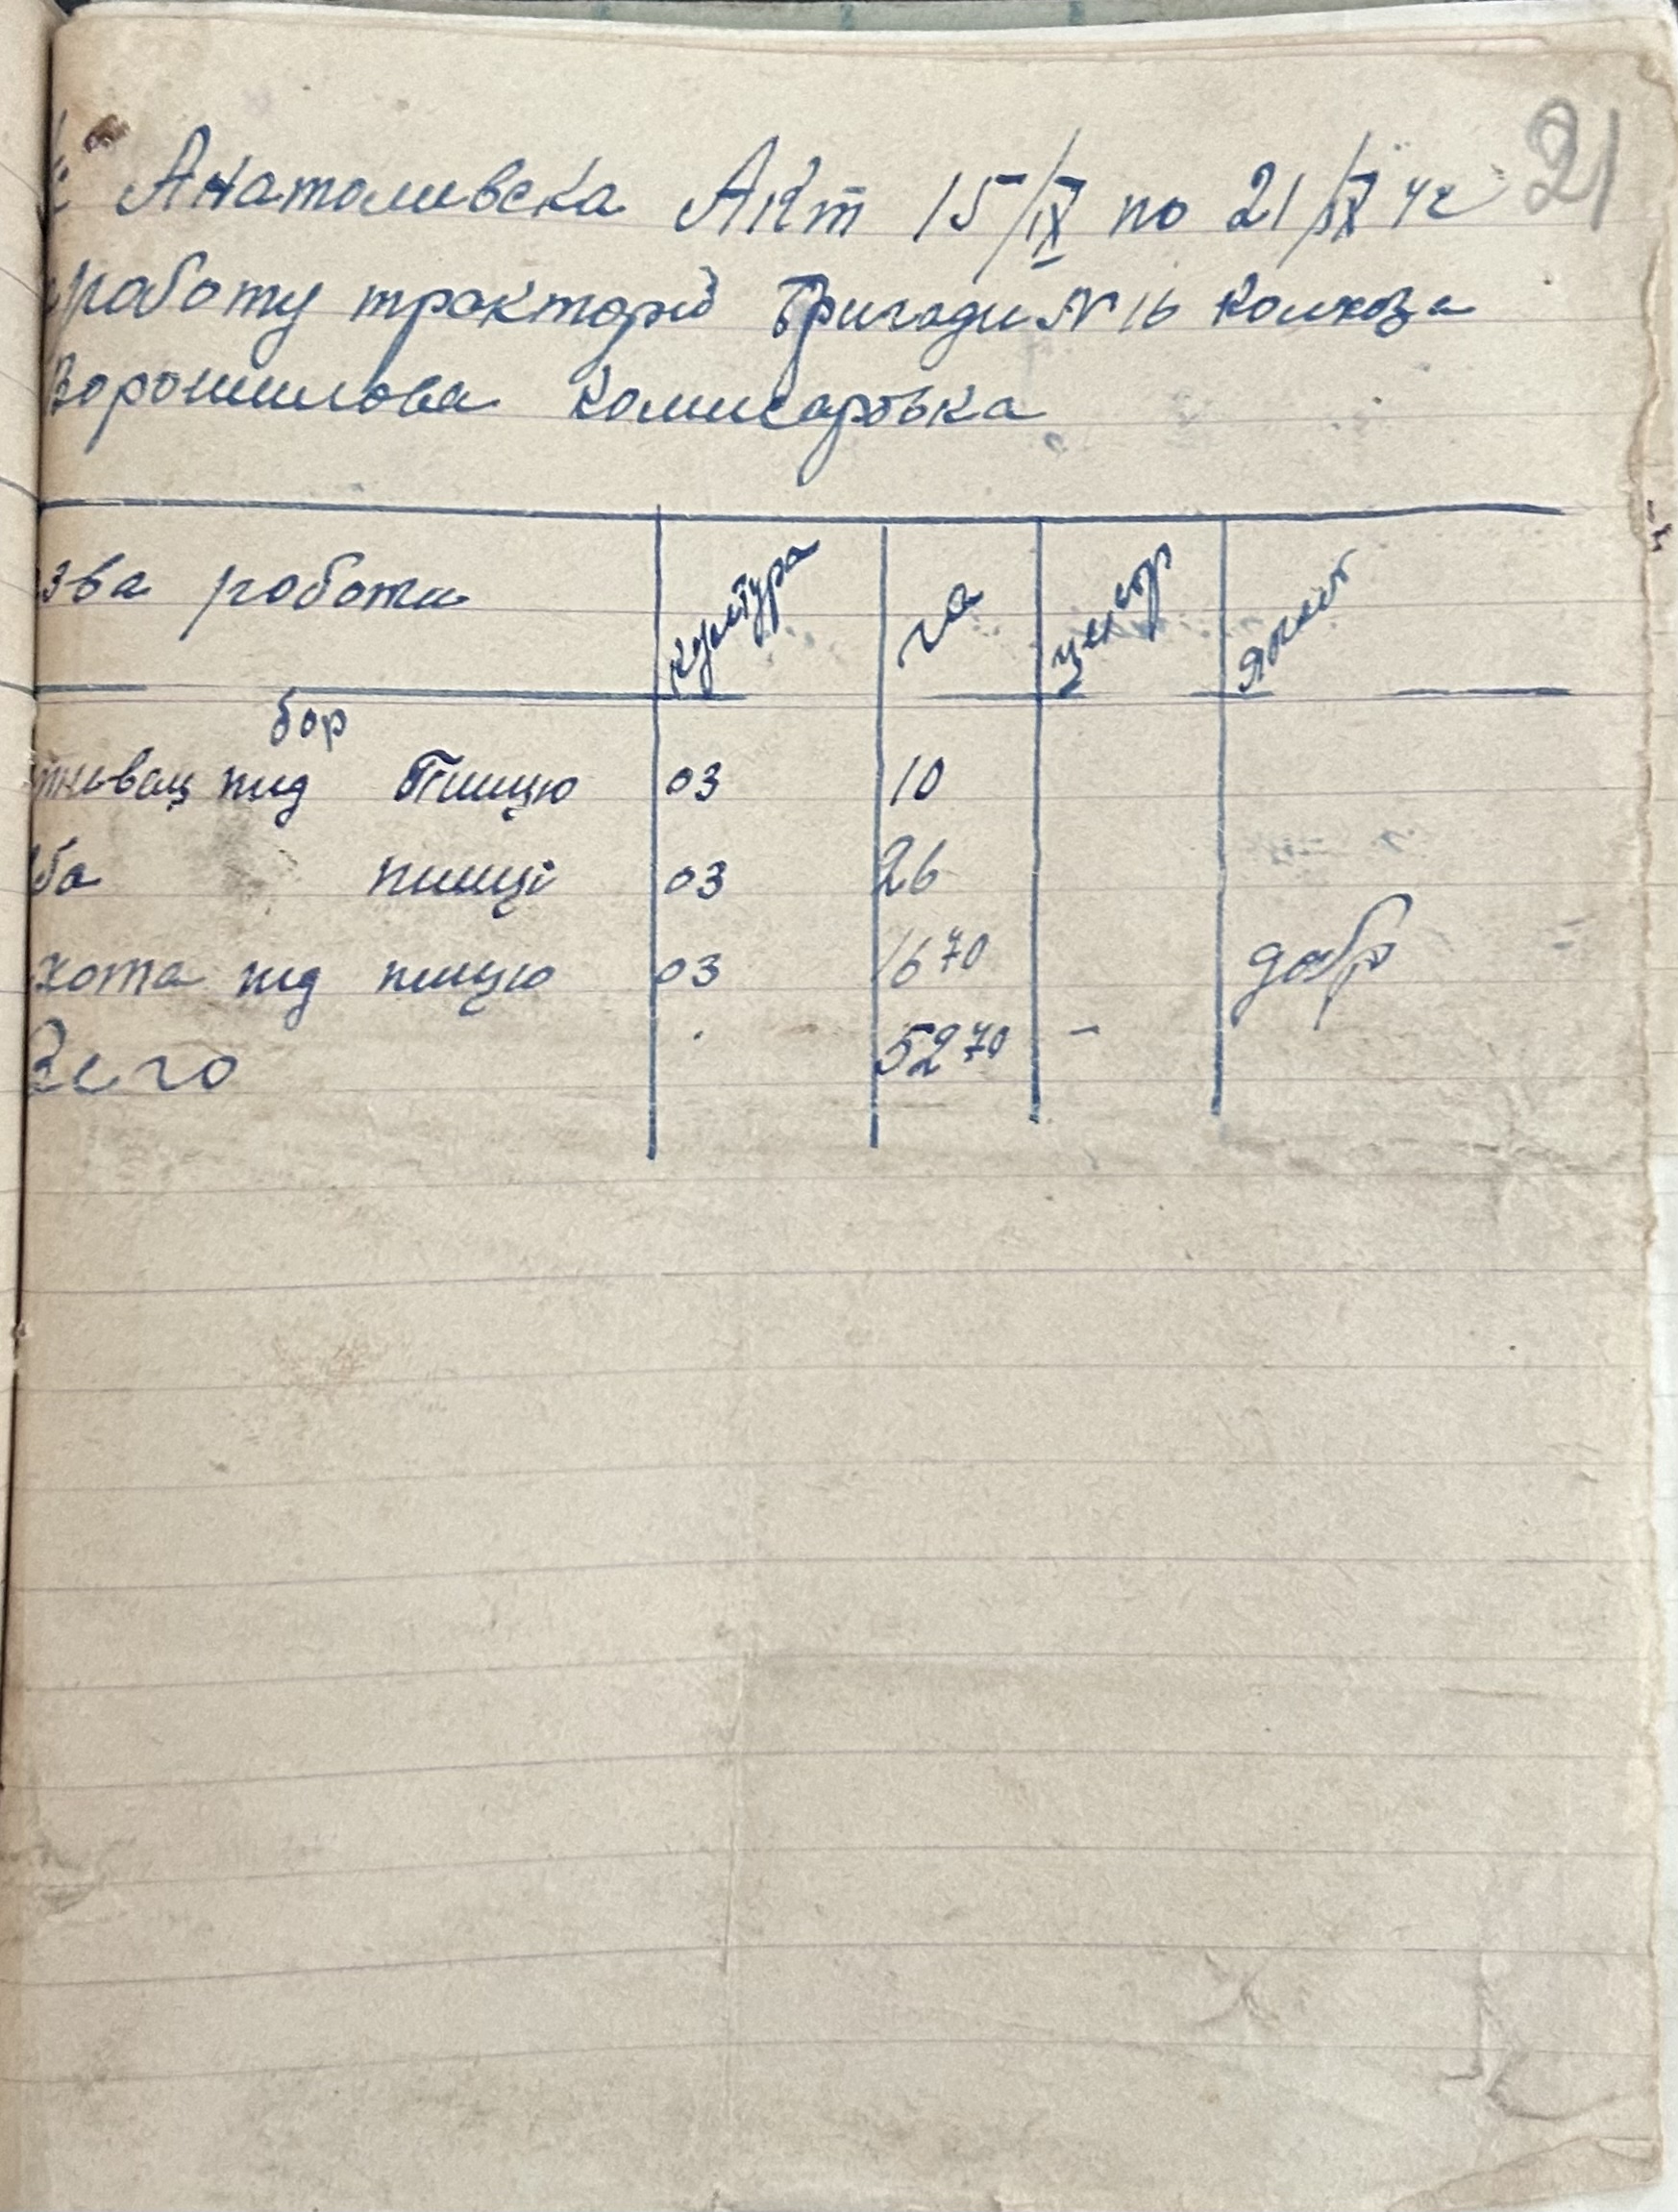 21
Анатоливска Акт 15/IX по 21/IX 42
работу тракторів Бригади № 16 колхоза
Ворошилова Комисаровка
зва работи культура га
бор
тивац пид Пшицю 03 10
ба пшиці 03 26
хота пид пшицю 03 16 70 добр
Всего 52 70 -